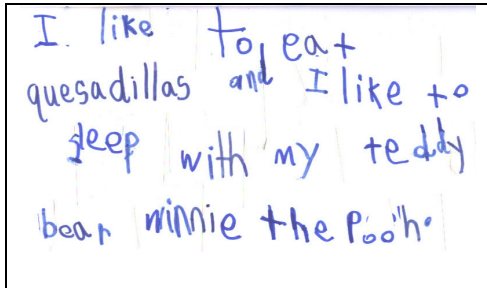 I. like to eat
quesadillas and I like to
sleep with my teddy
bear winnie the Pooh.